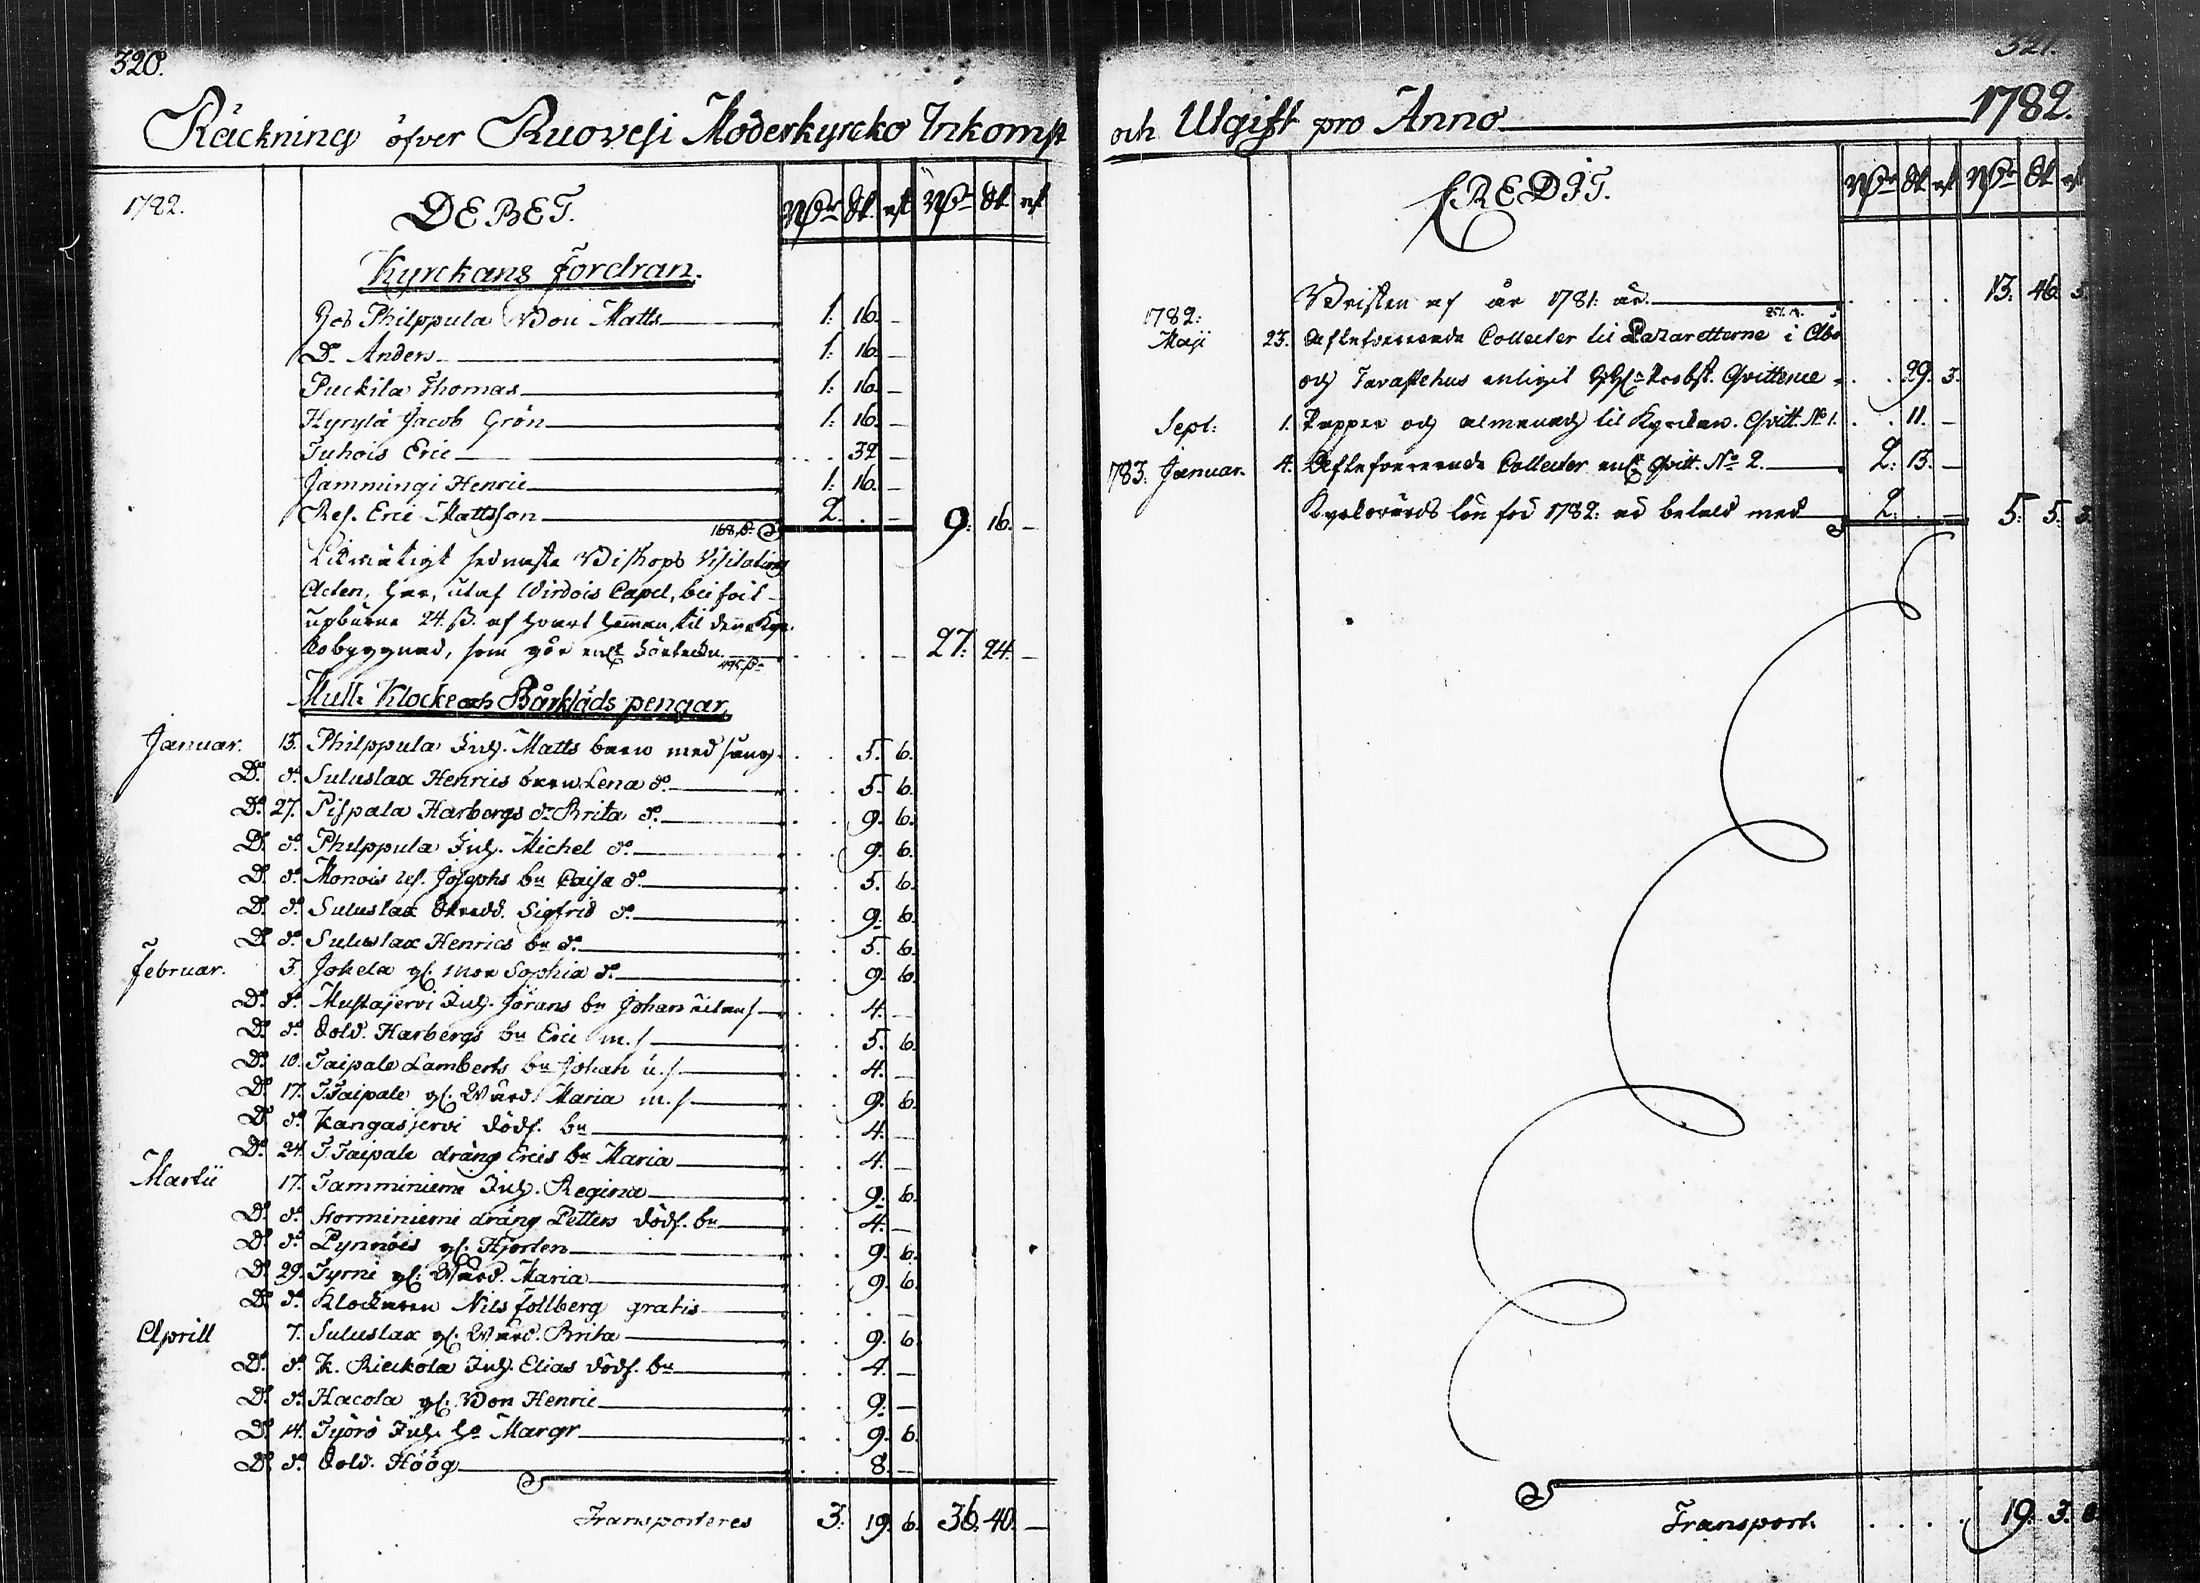 320.
Räckning öfver Ruovesi Moderkyrcko Inkomst
1782.
DEBET.
Kyrckans fordran.
Philppula Bon Matts 1: 16. —
D:o Anders 1: 16. —
Puckila Thomas 1: 16. —
Hyrylä Jacob Grön 1: 16. —
Juhois Eric 32 —
Jammingi Henric 1: 16. —
Res. Eric Mattsson 2. . — 9: 16. —
sednaste Biskops Visitations
Acten, har, utaf Wirdois Capel, blifvit
upburne 24. ß. af hvart hemman, til denna Kyr-
kobyggnad, som gör enl:t 27: 24. —
Mull: Klocke och Bårkläds pengar.
Januar. 13. Philppula Inh. Matts barn med sång 5. 6.
D:o d:o Suluslax Henrics barn Lena d:o 5. 6.
D:o 27. Pispala Harbergs d:r Brita d:o 9. 6.
D:o d:o Philppula Inh. Michel d:o 9. 6.
D:o d:o Monois Josephs bn Caisa d:o 5. 6.
D:o d:o Suluslax Sigfrid d:o 9. 6.
D:o d:o Suluslax Henrics bn d:o 5. 6.
Februar. 3. Jokela gl. mor Sophia d:o 9. 6.
D:o d:o Mustajervi Inh. Jörans bn Johan utan s 4. —
D:o d:o Sold. Harbergs bn Eric m. s 5. 6.
D:o 10. Taipale Lamberts bn Johan u. s 4. —
D:o 17. T Taipale gl. Wärd. Maria m. s 9. 6.
D:o d:o Kangasjervi dödf. bn 4. —
D:o 24. T Taipale dräng Erics bn Maria 4. —
Martii 17. Tamminiemi Inh. Regina 9. 6.
D:o d:o Storminiemi dräng Petters dödf. bn 4. —
D:o d:o Pynnöis gl. Hjorten 9. 6.
D:o 29. Tyrni gl. Wärd. Maria 9. 6.
D:o d:o Klockaren Nils follberg gratis —
Aprill 7. Suluslax gl. Wärd. Brita 9. 6.
D:o d:o K. Rieckola Inh. Elias dödf. bn 4. —
D:o d:o Hacola gl. Bon Henric 9. —
D:o 14. Työrö Inh. Margr 9. 6.
D:o d:o Sold. Höög 8. —
Transporteres 3: 19. 6. 36: 40. —
321.
och Utgift pro Anno 1782.
CREDIT.
Bristen af år 1781: är 13: 46. 5.
1782:
Maji 23. Aflefvererade Collecter til Lazaretterne i Åbo
och Tavastehus enligit Probst. Qvittence 29. 3.
Sept: 1. Papper och almanach til Kyrckan. Qvitt. No 1. 11. —
1783. Januar. 4. Aflefvererade Collecter enl:t Qvitt. No 2. 2: 13. —
Kyrkovärds lön för 1782: är betald med 2. . — 5. 5. 3.
Transport. 19. 3.